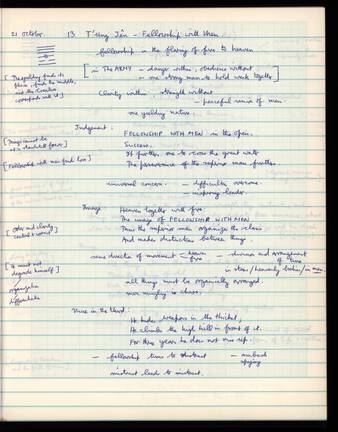 21 October
13 T'ung Jên - Fellowship with Men
fellowship - in the flaring of fire to heaven
in The ARMY - danger within, obedience without
- one strong man to hold weak together
[The yielding finds its place, finds the middle, and the Creative corresponds with it]
Clarity within, strength without
- peaceful union of men.
one yielding nature.
Judgement:
FELLOWSHIP WITH MEN in the open.
Success.
It furthers one to cross the great water
The perseverance of the superior man furthers.
[Things cannot be at a standstill forever]
[Fellowship with men finds love]
universal concern - difficulties overcome.
- inspiring leader
Image
Heaven together with fire:
The image of FELLOWSHIP WITH MEN
Thus the superior man organizes the clans
And makes distinctions between things.
[Order and clarity]
same direction of movement - heaven
- fire
- division and arrangement of time
in stars/heavenly bodies/in men.
[It must not degrade himself]
organization
differentiate
all things must be organically arranged.
mingling is chaos.
Nine in the third:
He hides weapons in the thicket,
He climbs the high hill in front of it.
For three years he does not rise up.
- fellowship turns to mistrust - ambush
spying
mistrust leads to mistrust.